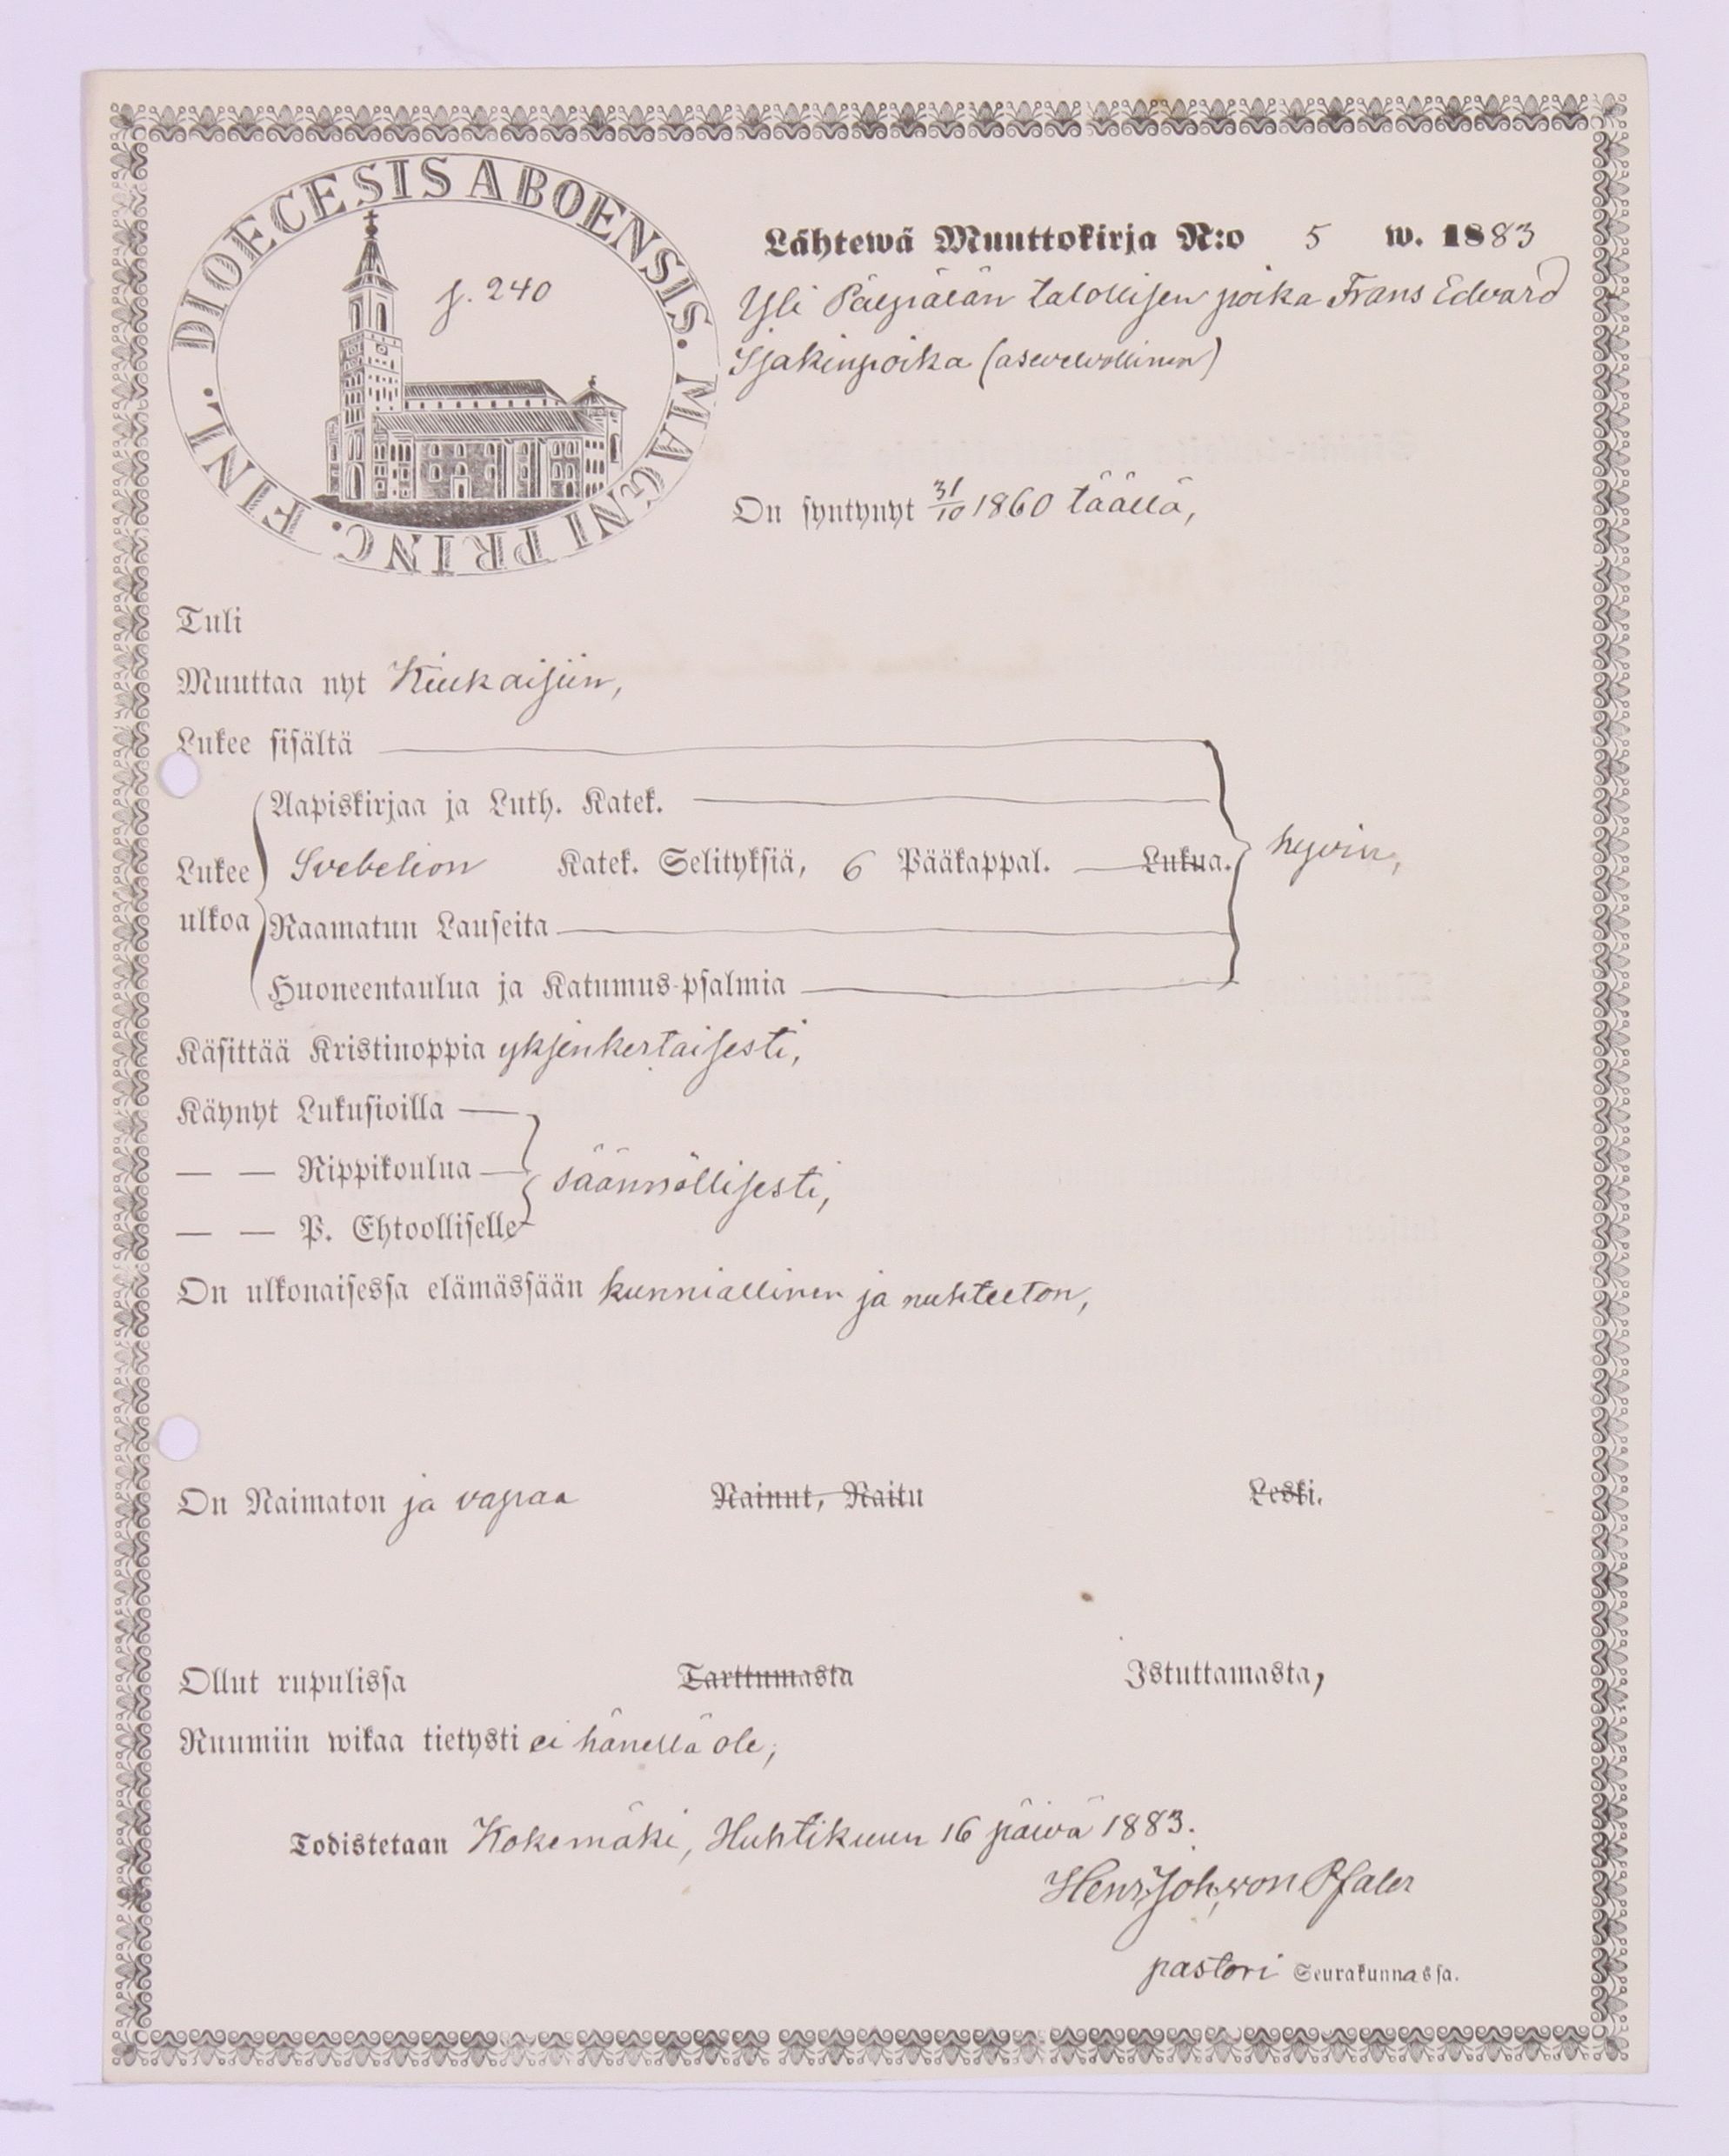 DIOECESIS ABOENSIS. MAGNI PRINC. FINL.
p. 240
Lähtewä Muuttokirja N:o 5 w. 1883
Yli Päepälän talollisen poika Frans Edvard
Isakinpoika (asevelvollinen)
On syntynyt 31/10 1860 täällä,
Tuli
Muuttaa nyt Kiukaisiin,
Lukee sisältä
Aapiskirjaa ja Luth. Katek.
Lukee ulkoa Svebelion Katek. Selityksiä, 6 Pääkappal. Lukua. hyvin,
Raamatun Lauseita
Huoneentaulua ja Katumus-psalmia
Käsittää Kristinoppia yksenkertaisesti,
Käynyt Lukusioilla
— — Rippikoulua säännöllisesti,
— — P. Ehtoolliselle
On ulkonaisessa elämässään kunniallinen ja nuhteeton,
On Naimaton ja vapaa Nainut, Naitu Leski.
Ollut rupulissa Tarttumasta Istuttamasta,
Ruumiin wikaa tietysti ei hänellä ole,
Todistetaan Kokemäki, Huhtikuun 16 päivä 1883.
Henr. Joh. von Pfaler
pastori Seurakunnassa.